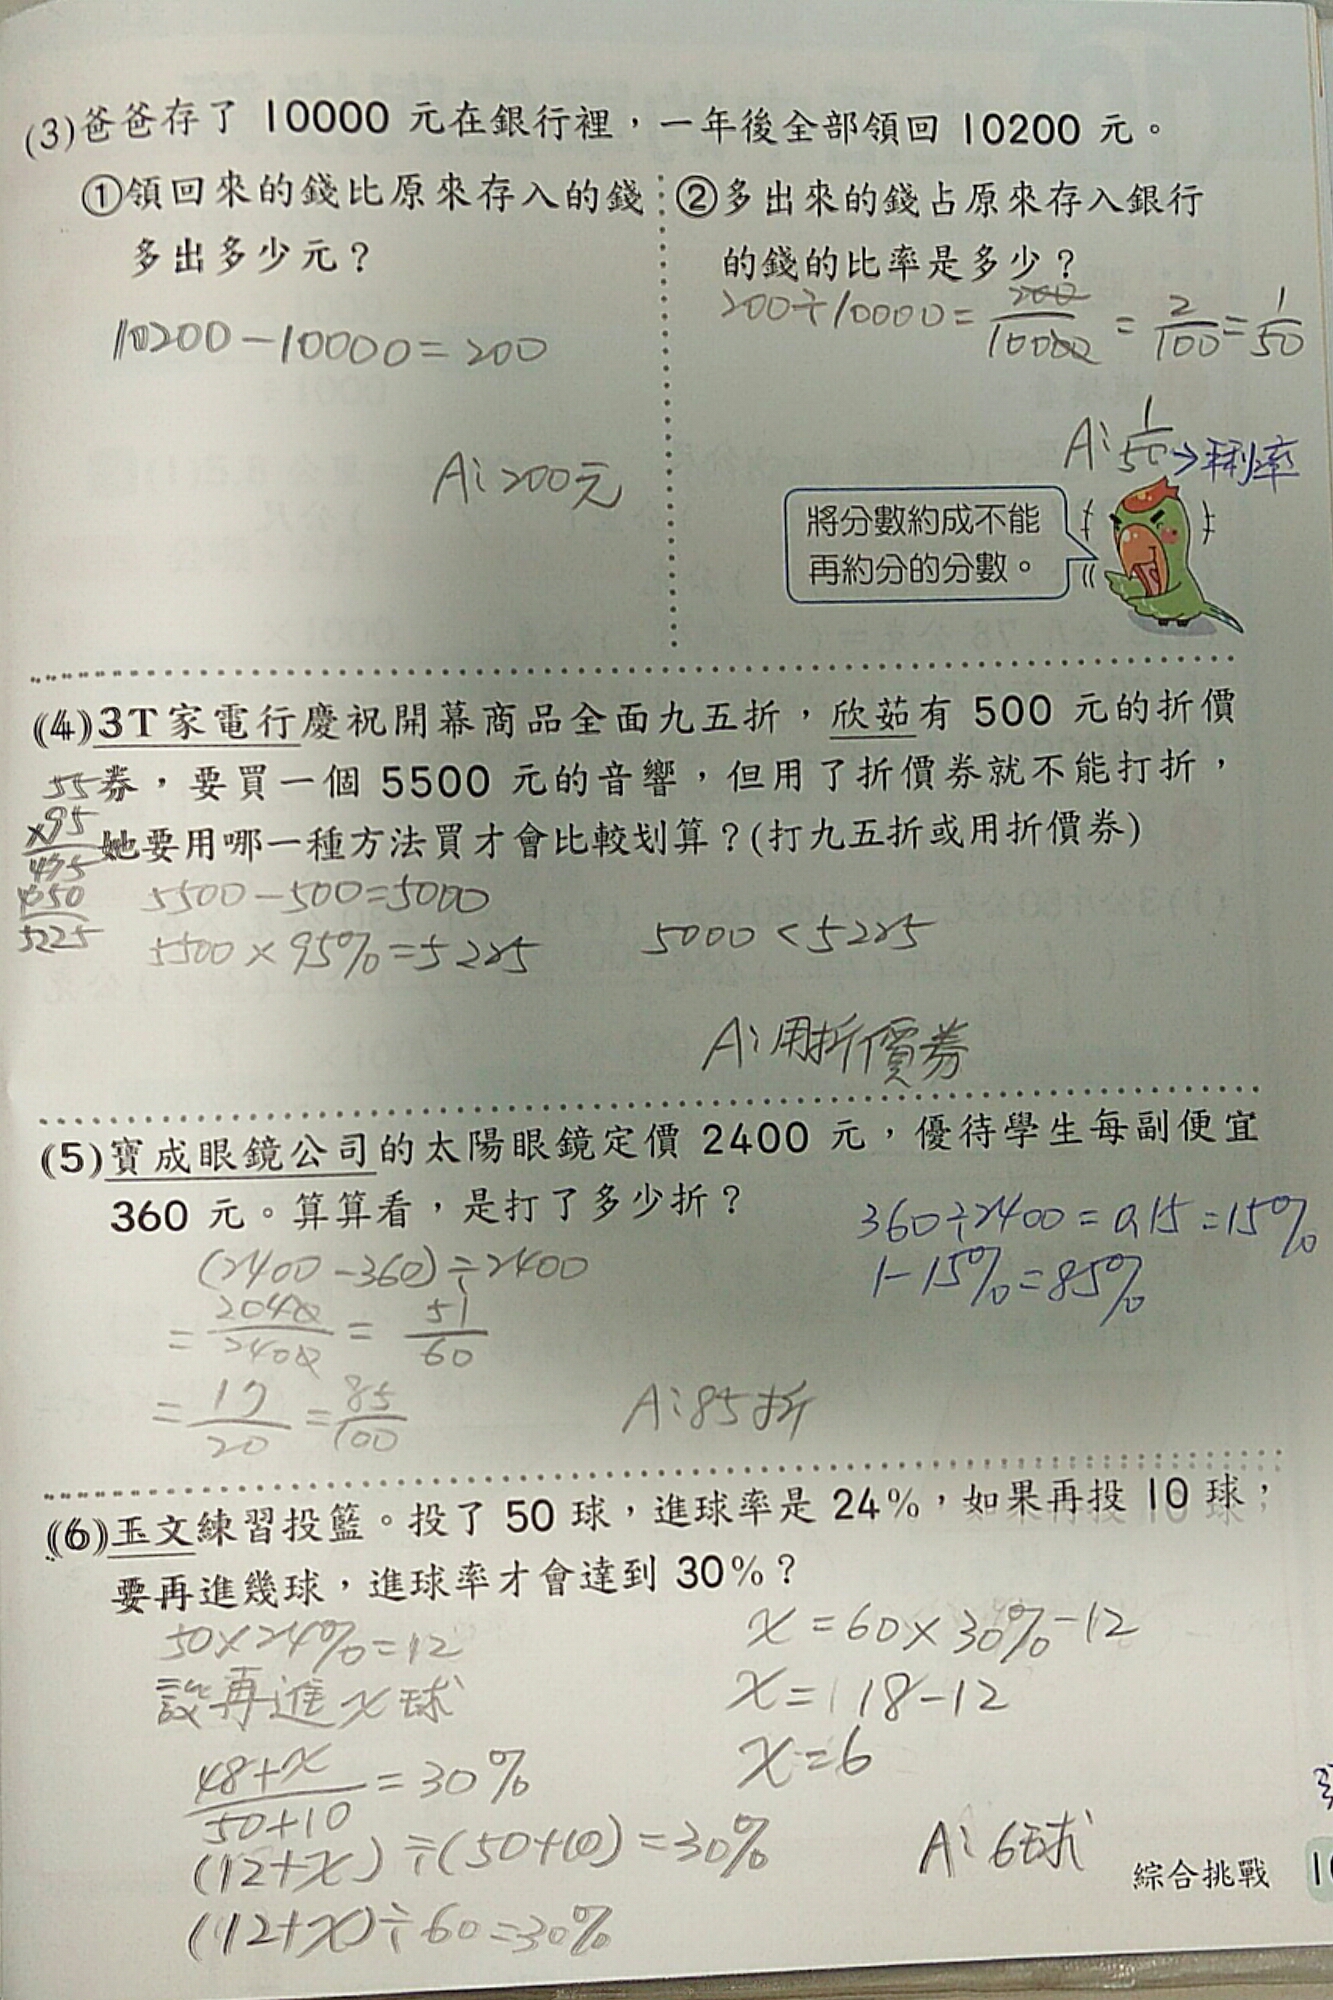 (3)爸爸存了 10000 元在銀行裡，一年後全部領回 10200 元。
①領回來的錢比原來存入的錢
多出多少元？
10200-10000=200
A:200元
②多出來的錢占原來存入銀行
的錢的比率是多少？
200÷10000=200/10000=2/100=1/50
A:1/50→利率
將分數約成不能
再約分的分數。
(4)3T家電行慶祝開幕商品全面九五折，欣茹有 500 元的折價
券，要買一個 5500 元的音響，但用了折價券就不能打折，
她要用哪一種方法買才會比較划算？(打九五折或用折價券)
55
×95
5225
5500-500=5000
5500×95%=5225
5000<5225
A:用折價券
(5)寶成眼鏡公司的太陽眼鏡定價 2400 元，優待學生每副便宜
360 元。算算看，是打了多少折？
(2400-360)÷2400
=2040/2400=51/60
=17/20=85/100
360÷2400=0.15=15%
1-15%=85%
A:85折
(6)玉文練習投籃。投了 50 球，進球率是 24%，如果再投 10 球，
要再進幾球，進球率才會達到 30%？
50×24%=12
設再進x球
48+x/50+10=30%
(12+x)÷(50+10)=30%
(12+x)÷60=30%
x=60×30%-12
x=18-12
x=6
A:6球
綜合挑戰